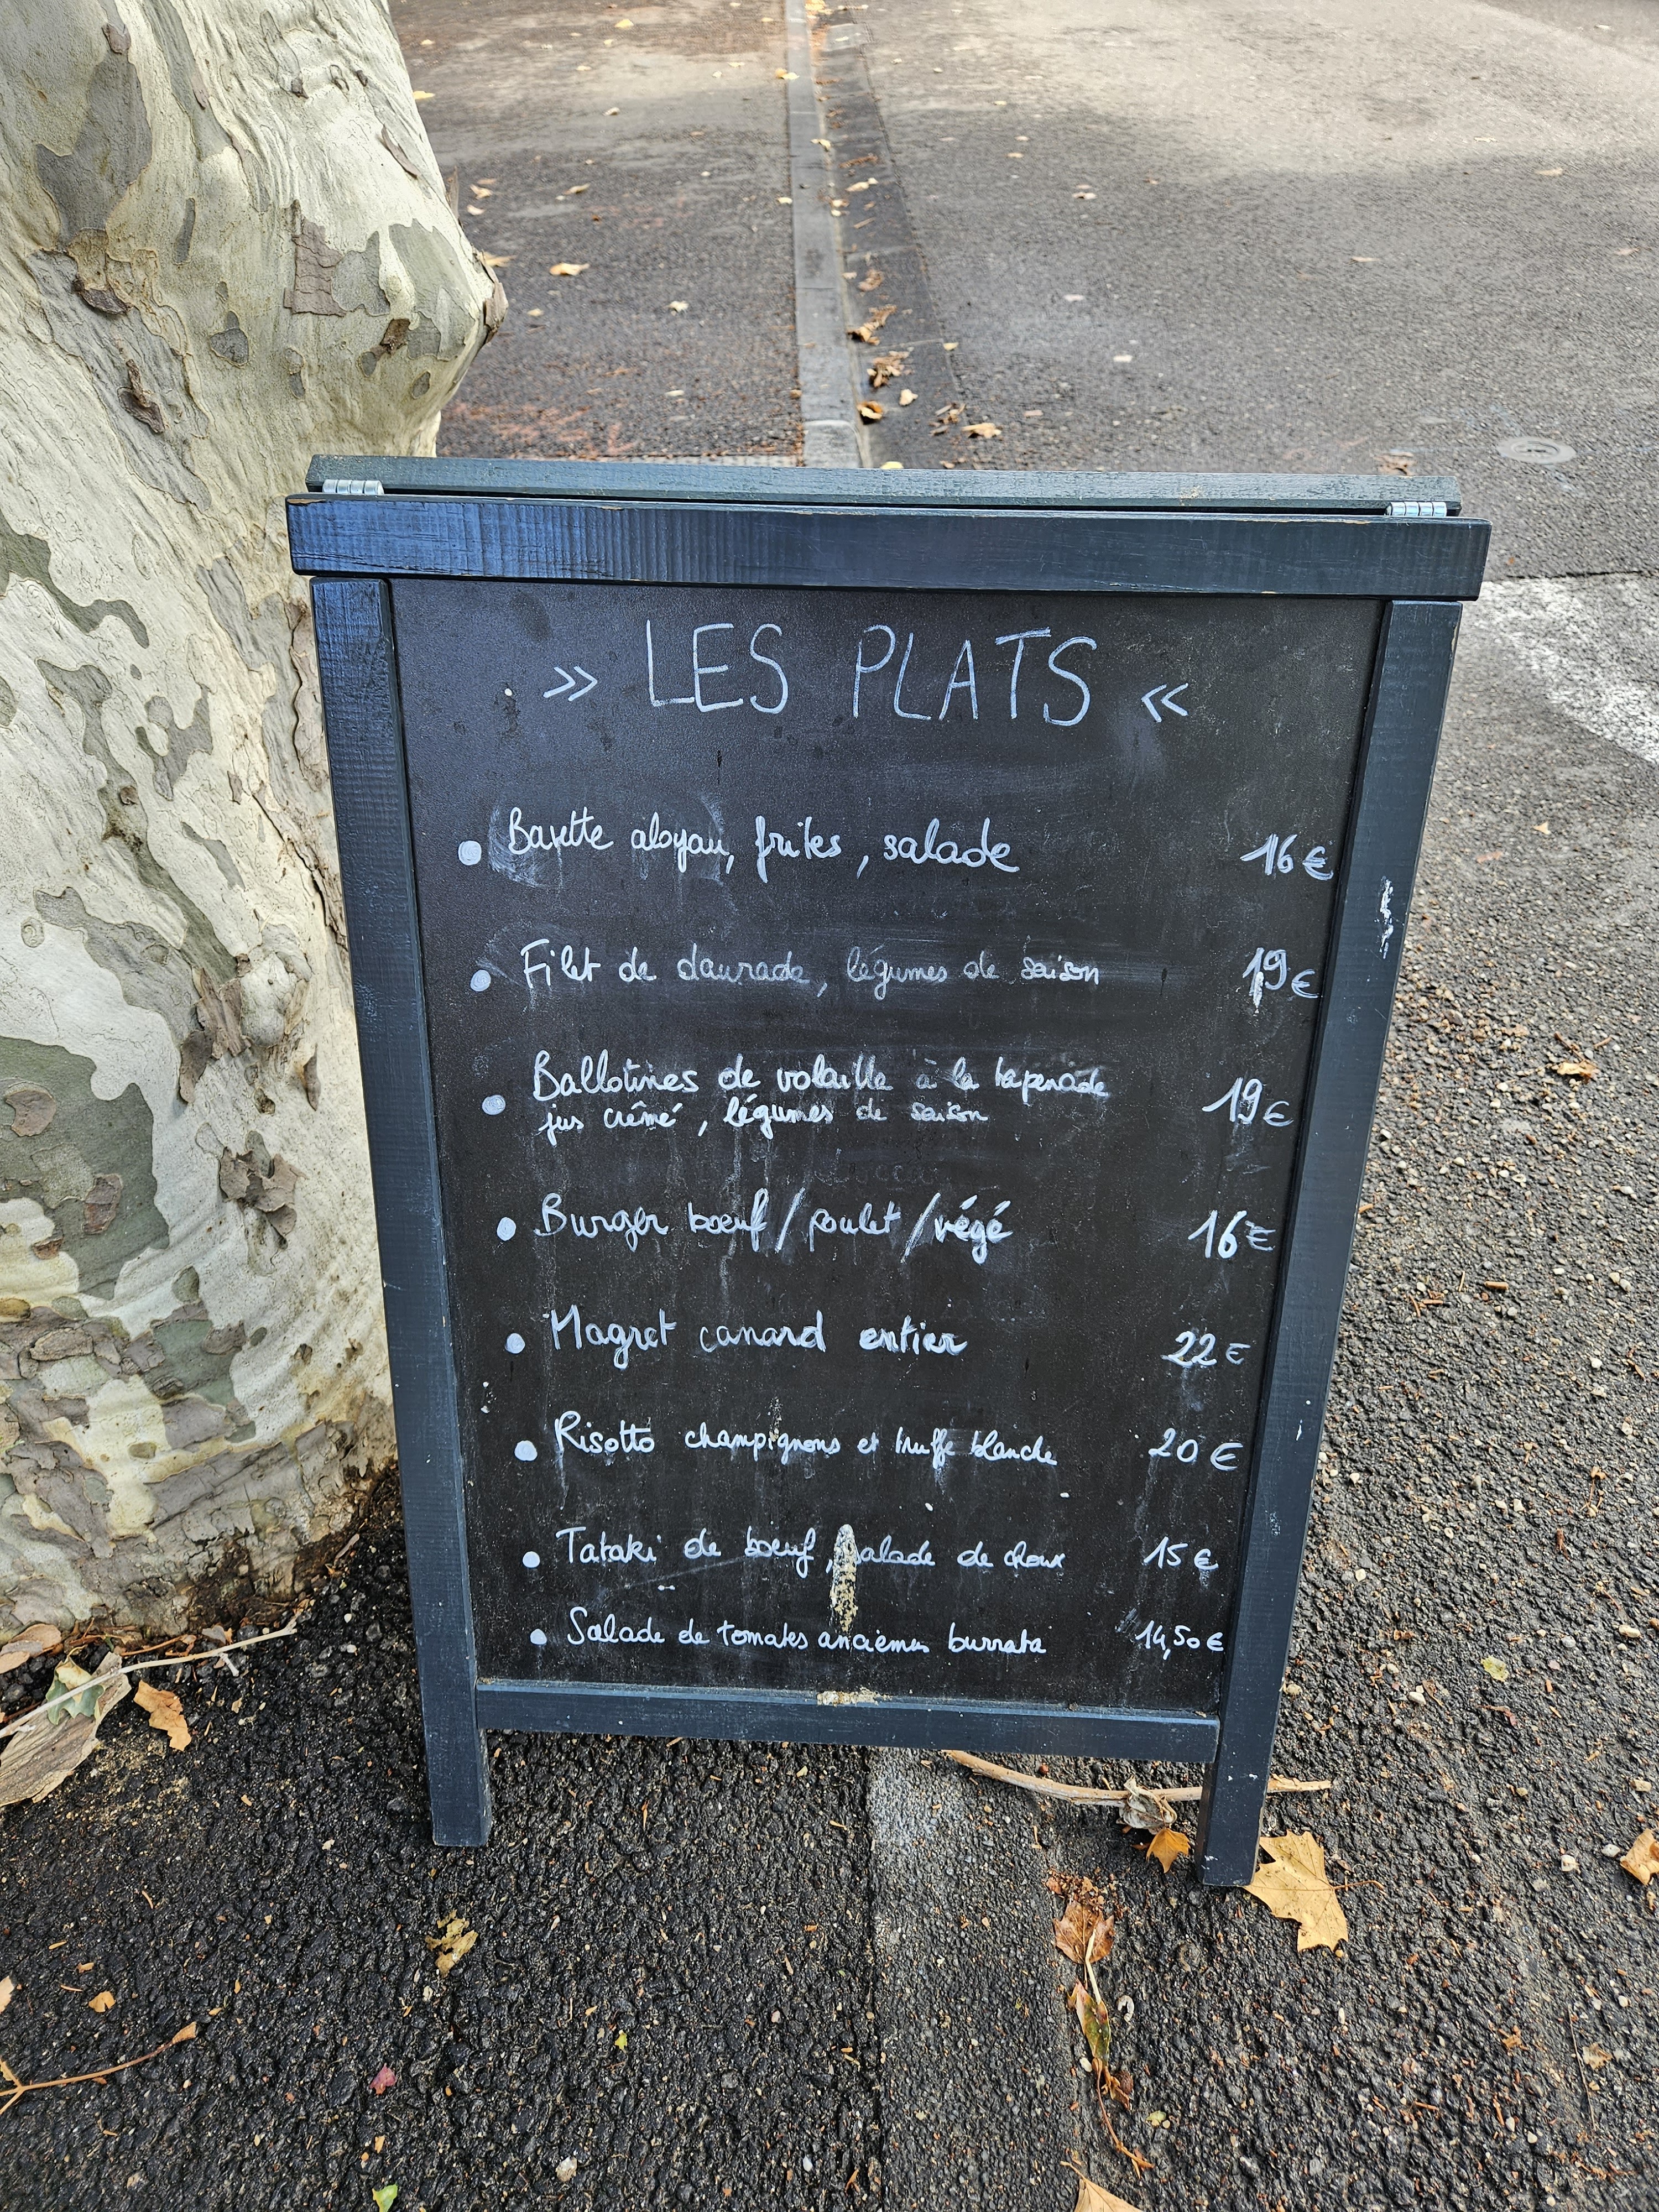 » LES PLATS «
• Bavette aloyau, frites, salade 16€
• Filet de daurade, légumes de saison 19€
• Ballotines de volaille à la tapenade
jus crêmé, légumes de saison 19€
• Burger boeuf / poulet / végé 16€
• Magret canard entier 22€
• Risotto champignons et truffe blanche 20€
• Tataki de boeuf, salade de choux 15€
• Salade de tomates anciennes burrata 14,50€